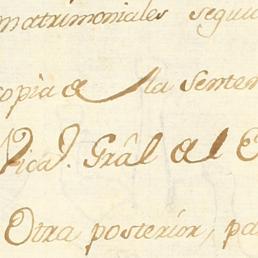 matrimoniales seguid
copia de la senten
Vica.l Grâl al E
Otra posterior, pa